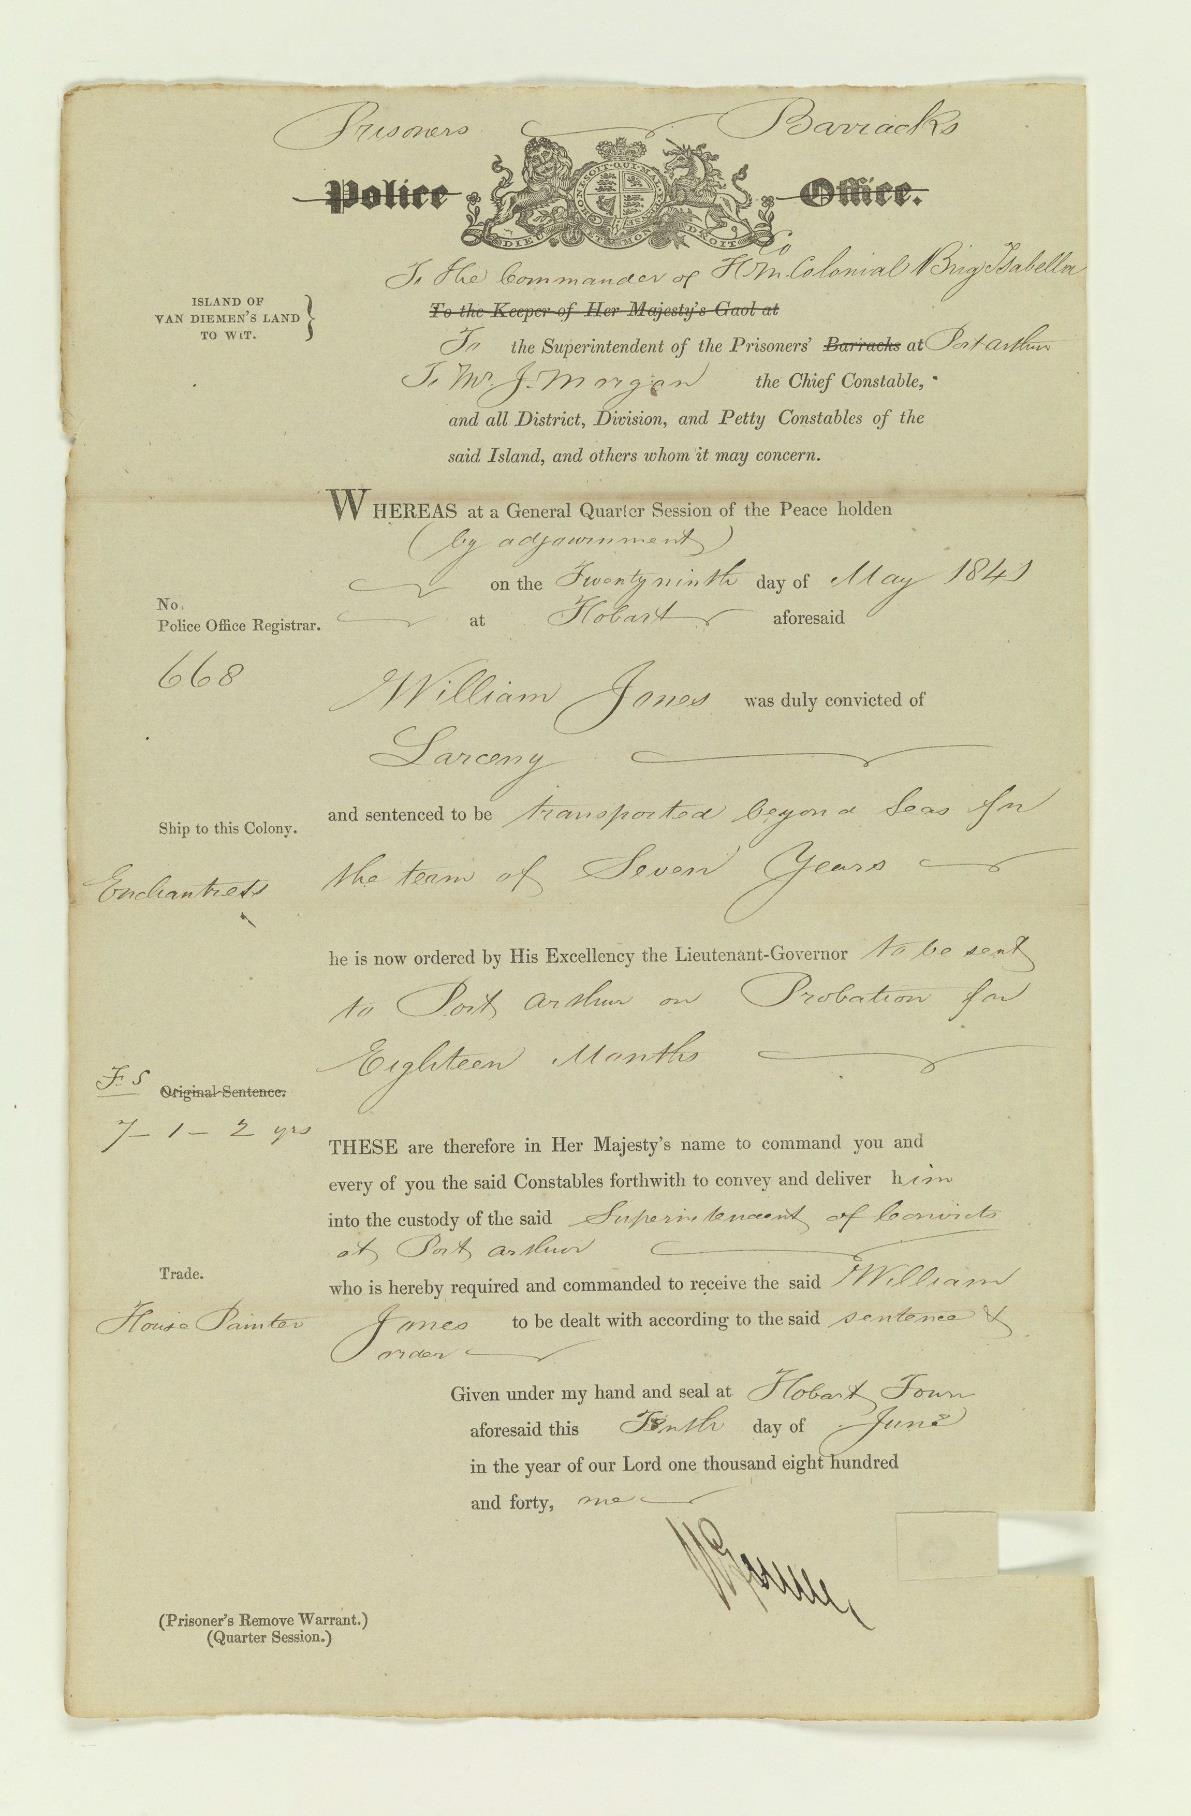 Prisoners Barracks
Police Office.
HONI·SOIT·QUI·MAL·Y·PENSE
DIEU ET MON DROIT
To the Commander of H M Colonial Brig Isabella
Co
To the Keeper of Her Majesty's Gaol at
ISLAND OF
VAN DIEMEN'S LAND
TO WIT.
To the Superintendent of the Prisoners' Barracks at Port Arthur
To Mr. J. Morgan the Chief Constable,
and all District, Division, and Petty Constables of the
said Island, and others whom it may concern.
WHEREAS at a General Quarter Session of the Peace holden
(by adjournment)
on the Twenty ninth day of May 1841
No.
Police Office Registrar.
at Hobart aforesaid
668
William Jones was duly convicted of
Larceny
Ship to this Colony.
and sentenced to be transported beyond Seas for
Enchantress
the term of Seven Years
he is now ordered by His Excellency the Lieutenant-Governor to be sent
to Port Arthur on Probation for
Eighteen Months
F. S Original Sentence.
7 - 1 - 2 yrs
THESE are therefore in Her Majesty's name to command you and
every of you the said Constables forthwith to convey and deliver him
into the custody of the said Superintendent of Convicts
at Port Arthur
Trade.
who is hereby required and commanded to receive the said William
House Painter
Jones to be dealt with according to the said sentence &
order
Given under my hand and seal at Hobart Town
aforesaid this Tenth day of June
in the year of our Lord one thousand eight hundred
and forty, one
(Prisoner's Remove Warrant.)
(Quarter Session.)